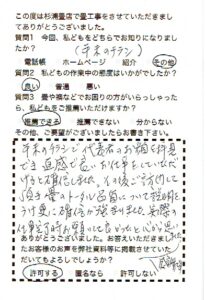 この度は杉浦畳店で畳工事をさせていただきまし
てありがとうございました。
質問1 今回、私どもをどちらでお知りになりまし
たか? (年末のチラシ)
電話帳 ホームページ 紹介 その他
質問2 私どもの作業中の態度はいかがでしたか?
良い 普通 悪い
質問3 畳や襖などでお困りの方がいらっしゃった
ら、私ども をご推薦いただけますか?
推薦できる 推薦できない 分からない
その他、ご要望がございましたらお書き下さい。
年末のチラシで代表者のお顔を拝見
でき直感で良いお仕事をしていただ
けると確信しました。その後ご訪問して
頂き畳のトータル品質について説明を
うけ更に確信が強まりました。実際の
仕上り
ありがとうございました。お答えいただきまし
たお客様のお声を弊社資料等に掲載させていた
だいてもよろしでしょうか?
許可する 匿名なら 許可しない